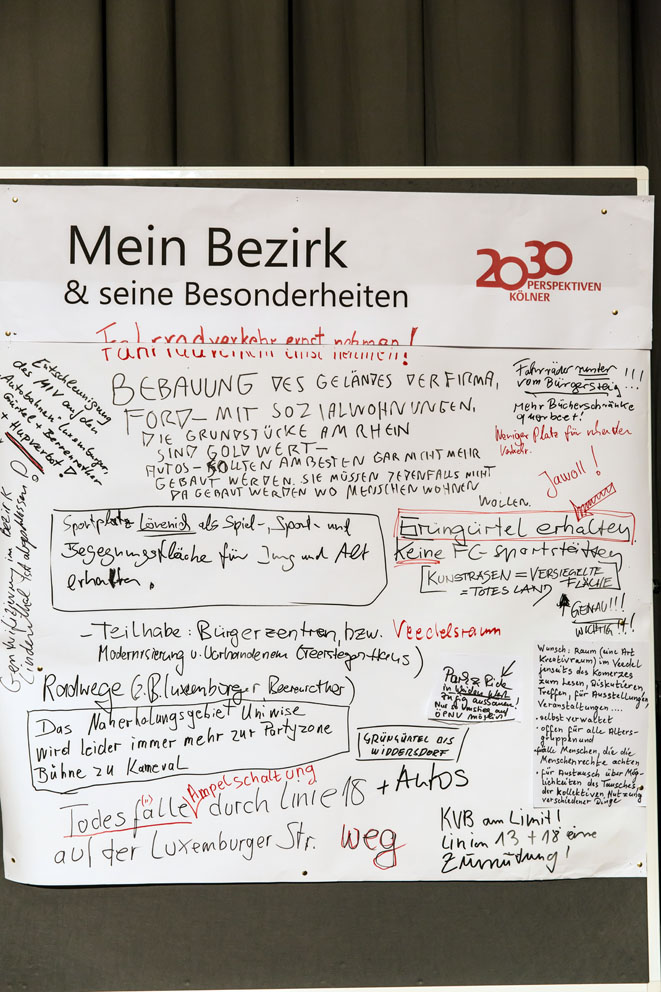 Mein Bezirk
& seine Besonderheiten
2030
PERSPEKTIVEN
KÖLNER
Fahrradverkehr ernst nehmen!
Entschleunigung
des MIV auf den
Autobahnen Luxemburger,
Gürtel + Berrenrather
+ Hupverbot!
BEBAUUNG DES GELÄNDES DER FIRMA,
FORD – MIT SOZIALWOHNUNGEN,
DIE GRUNDSTÜCKE AM RHEIN
SIND GOLD WERT –
AUTOS – SOLLTEN AM BESTEN GAR NICHT MEHR
GEBAUT WERDEN. SIE MÜSSEN JEDENFALLS NICHT
DA GEBAUT WERDEN WO MENSCHEN WOHNEN
WOLLEN.
Fahrräder runter !!!
vom Bürgersteig !!!
Mehr Bücherschränke
Weniger Platz für ruhenden
Verkehr.
Jawoll!
Gentrifizierung im Bezirk
Lindenthal ist abgeschlossen
Sportplatz Lövenich als Spiel-, Sport- und
Begegnungsfläche für Jung und Alt
erhalten.
Grüngürtel erhalten
Keine FC-Sportstätten
KUNSTRASEN = VERSIEGELTE
FLÄCHE
= TOTES LAND
GENAU!!!
WICHTIG!!!
– Teilhabe: Bürgerzentren, bzw. Veedelsraum
Modernisierung v. Vorhandenem (Teerstegenhaus)
Park & Ride
in Weiden West
zügig ausbauen!
Nur so Umstieg auf
ÖPNV möglich!
Wunsch: Raum (eine Art
Kreativraum) im Veedel
jenseits des Komerzes
zum Lesen, Diskutieren,
Treffen, für Ausstellungen,
Veranstaltungen ....
· selbst verwaltet
· offen für alle Alters-
gruppen und
· alle Menschen, die die
Menschenrechte achten
· für Austausch über Mög-
lichkeiten des Tausches,
der kollektiven Nutzung
verschiedener Dinge
Radwege (z.B. Luxemburger, Beerenrather)
Das Naherholungsgebiet Uniwise
wird leider immer mehr zur Partyzone
Bühne zu Karneval
GRÜNGÜRTEL BIS
WIDDERSDORF
Ampelschaltung
Todesfälle (n) durch Linie 18 + Autos
auf der Luxemburger Str. weg
KVB am Limit!
Linien 13 + 18 eine
Zumutung!